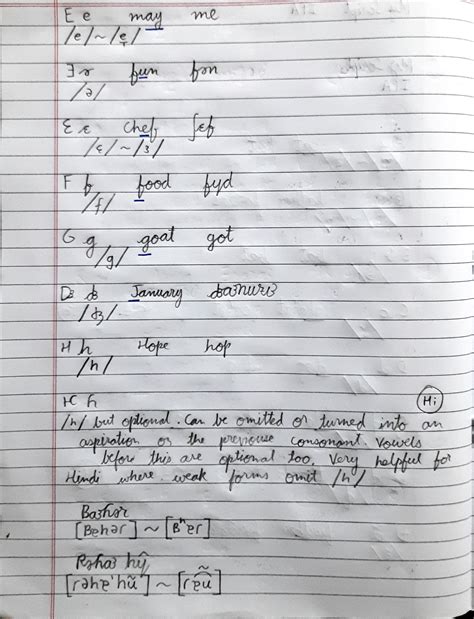 E e may me
/e/~/e̞/
Ǝ ɘ fun fɘn
/ə/
Ɛ ɛ chef ʃɛf
/ɛ/~/ɜ/
F f food fyd
/f/
G g goat got
/g/
January
/ʤ/
H h Hope hop
/h/
Hi
/h/ but optional. Can be omitted or turned into an
aspiration on the previouse consonant. Vowels
before this are optional too. Very helpful for
Hindi where weak forms omit /h/
[bɐhər] ~ [bʰɐr]